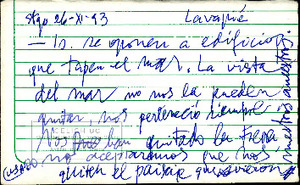 Stgo 26-XI-93 Lavapié
— Is. se oponen a edificios
que tapen el mar. La vista
del mar no nos la pueden
quitar, nos perteneció siempre
Nos han quitado la tierra
no aceptaremos que nos
quiten el paisaje que vieron
nuestros ancestros.